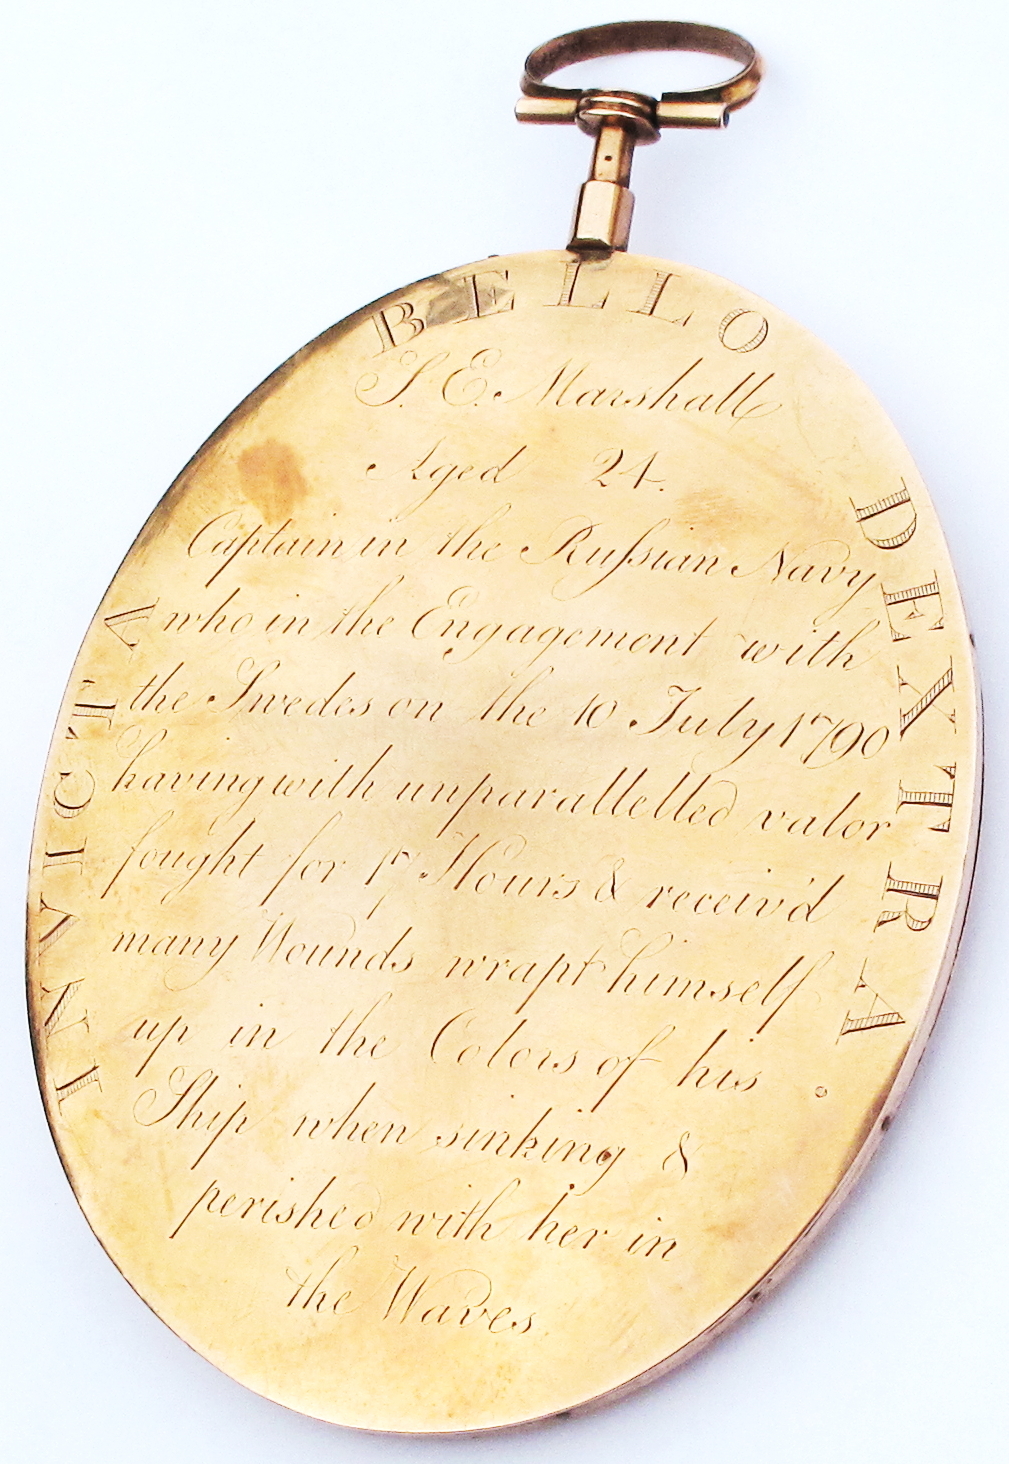 INVICTA BELLO DEXTRA
S. E. Marshall
Aged 24.
Captain in the Ruſsian Navy
who in the Engagement with
the Swedes on the 10 July 1790
having with unparallelled valor
fought for 17 Hours & receiv'd
many Wounds wrapt himself
up in the Colors of his
Ship when sinking &
perished with her in
the Waves